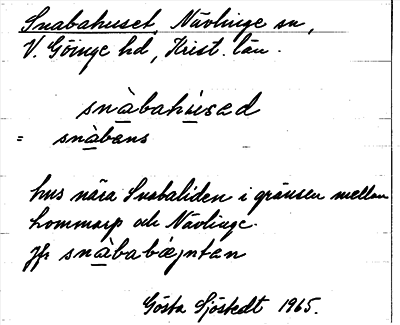 Snabahuset, Nävlinge sn,
V. Göinge hd, Krist. län.
snàbahùsəd
= snàbans
hus nära Snabaliden i gränsen mellan
Lommarp och Nävlinge.
Jfr snàbabæjntan
Gösta Sjöstedt 1965.